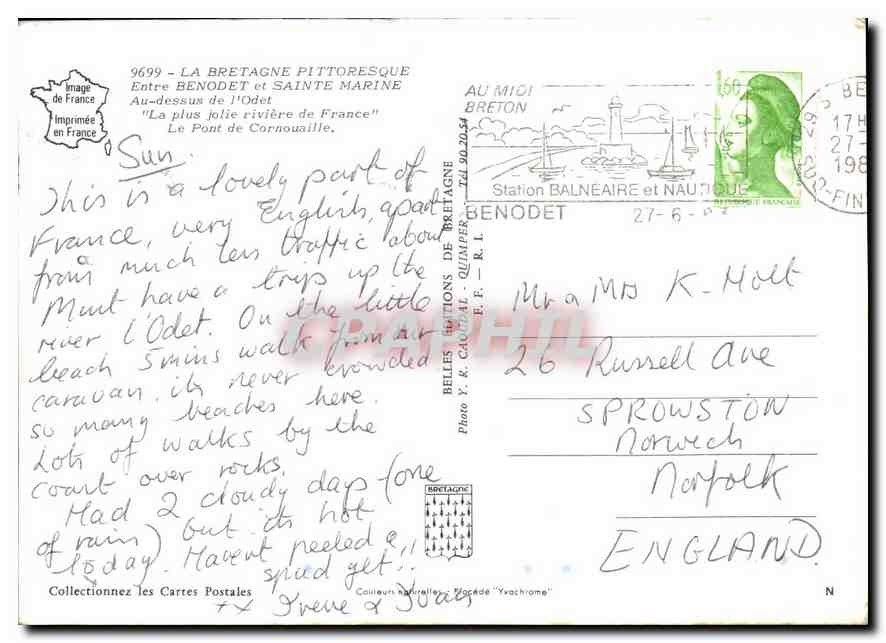 9699 - LA BRETAGNE PITTORESQUE
Entre BENODET et SAINTE MARINE
Au-dessus de l'Odet
"La plus jolie rivière de France"
Le Pont de Cornouaille.
Image
de France
Imprimée
en France
Sun.
This is a lovely part of
France, very English, apart
from much less traffic about
Must have a trip up the
river l'Odet. On the little
beach 5 mins walk from our
caravan, its never crowded
so many beaches here.
Lots of walks by the
coast over rocks.
Had 2 cloudy days (one
of rain) but its hot
today. Havent peeled a
spud yet!!
++ Irene &
Collectionnez les Cartes Postales
Couleurs naturelles - Procédé "Yvachrome"
N
BELLES EDITIONS DE BRETAGNE
Photo Y. R. CAOUDAL - QUIMPER - Tél 90.20.54
F. F. — R. I.
BRETAGNE
CPAPHIL
AU MIDI
BRETON
Station BALNÉAIRE et NAUTIQUE
BENODET
27-6-
1,60
REPUBLIQUE FRANCAISE
BE
17H
27-
198
29 SUD-FIN
Mr & Mrs K. Holt
26 Russell Ave
SPROWSTON
Norwich
Norfolk
ENGLAND.